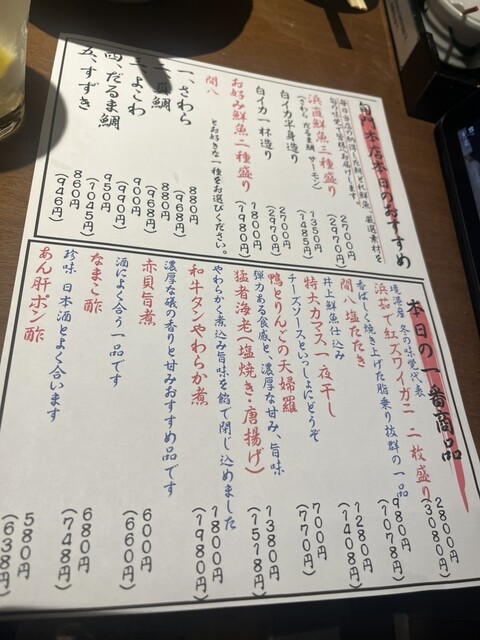 本店本日のおすすめ
毎日当店の納得した鮮どれ鮮魚、厳選素材を
浜直鮮魚三種盛り
2700円
(2970円)
(さわら だるま鯛 サーモン)
白イカ半身造り
1350円
(1485円)
白イカ一杯造り
2700円
(2970円)
お好み鮮魚二種盛り
1800円
(1980円)
間八
とお好きな一種をお選びください。
一、さわら
880円
(968円)
二、真鯛
880円
(968円)
三、よこわ
900円
(990円)
四、だるま鯛
950円
(1045円)
五、すずき
860円
(946円)
本日の一番商品
浜茹で紅ズワイガニ 二枚盛り
2800円
(3080円)
境港産 冬の味覚代表
間八塩たたき
980円
(1078円)
香ばしく焼き上げた脂乗り抜群の一品
特大カマス一夜干し
1280円
(1408円)
井上鮮魚仕込み
鴨とりんごの天婦羅
700円
(770円)
チーズソースといっしょにどうぞ
猛者海老(塩焼き・唐揚げ)
1380円
(1518円)
弾力ある食感と、濃厚な甘み、旨味
和牛タンやわらか煮
1800円
(1980円)
やわらかく煮込み旨味を餡で閉じ込めました
赤貝旨煮
600円
(660円)
濃厚な磯の香りと甘みおすすめ品です
なまこ酢
680円
(748円)
酒によく合う一品です
あん肝ポン酢
580円
(638円)
珍味 日本酒とよく合います